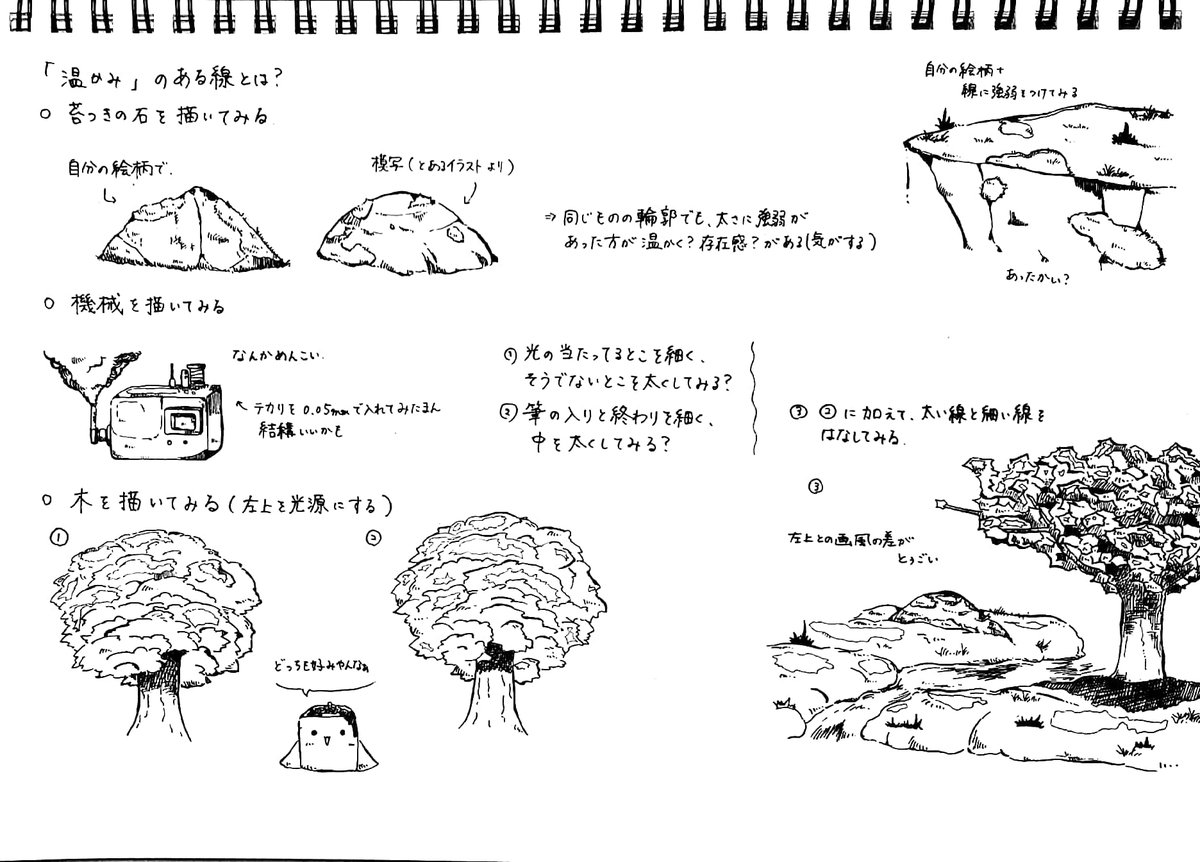 「温かみ」のある線とは?
○ 苔つきの石を描いてみる
自分の絵柄で.
模写(とあるイラストより)
⇒ 同じものの輪郭でも、太さに強弱が
あった方が温かく?存在感?がある(気がする)
自分の絵柄+
線に強弱をつけてみる
あったかい?
○ 機械を描いてみる
なんかめんこい.
← テカリを0.05mmで入れてみたまん
結構いいかも
① 光の当たってるとこを細く、
そうでないとこを太くしてみる?
② 筆の入りと終わりを細く、
中を太くしてみる?
③ ②に加えて、太い線と細い線を
はなしてみる.
○ 木を描いてみる(左上を光源にする)
①
②
どっちも好みやんなぁ
③
左上との画風の差が
とぅごい